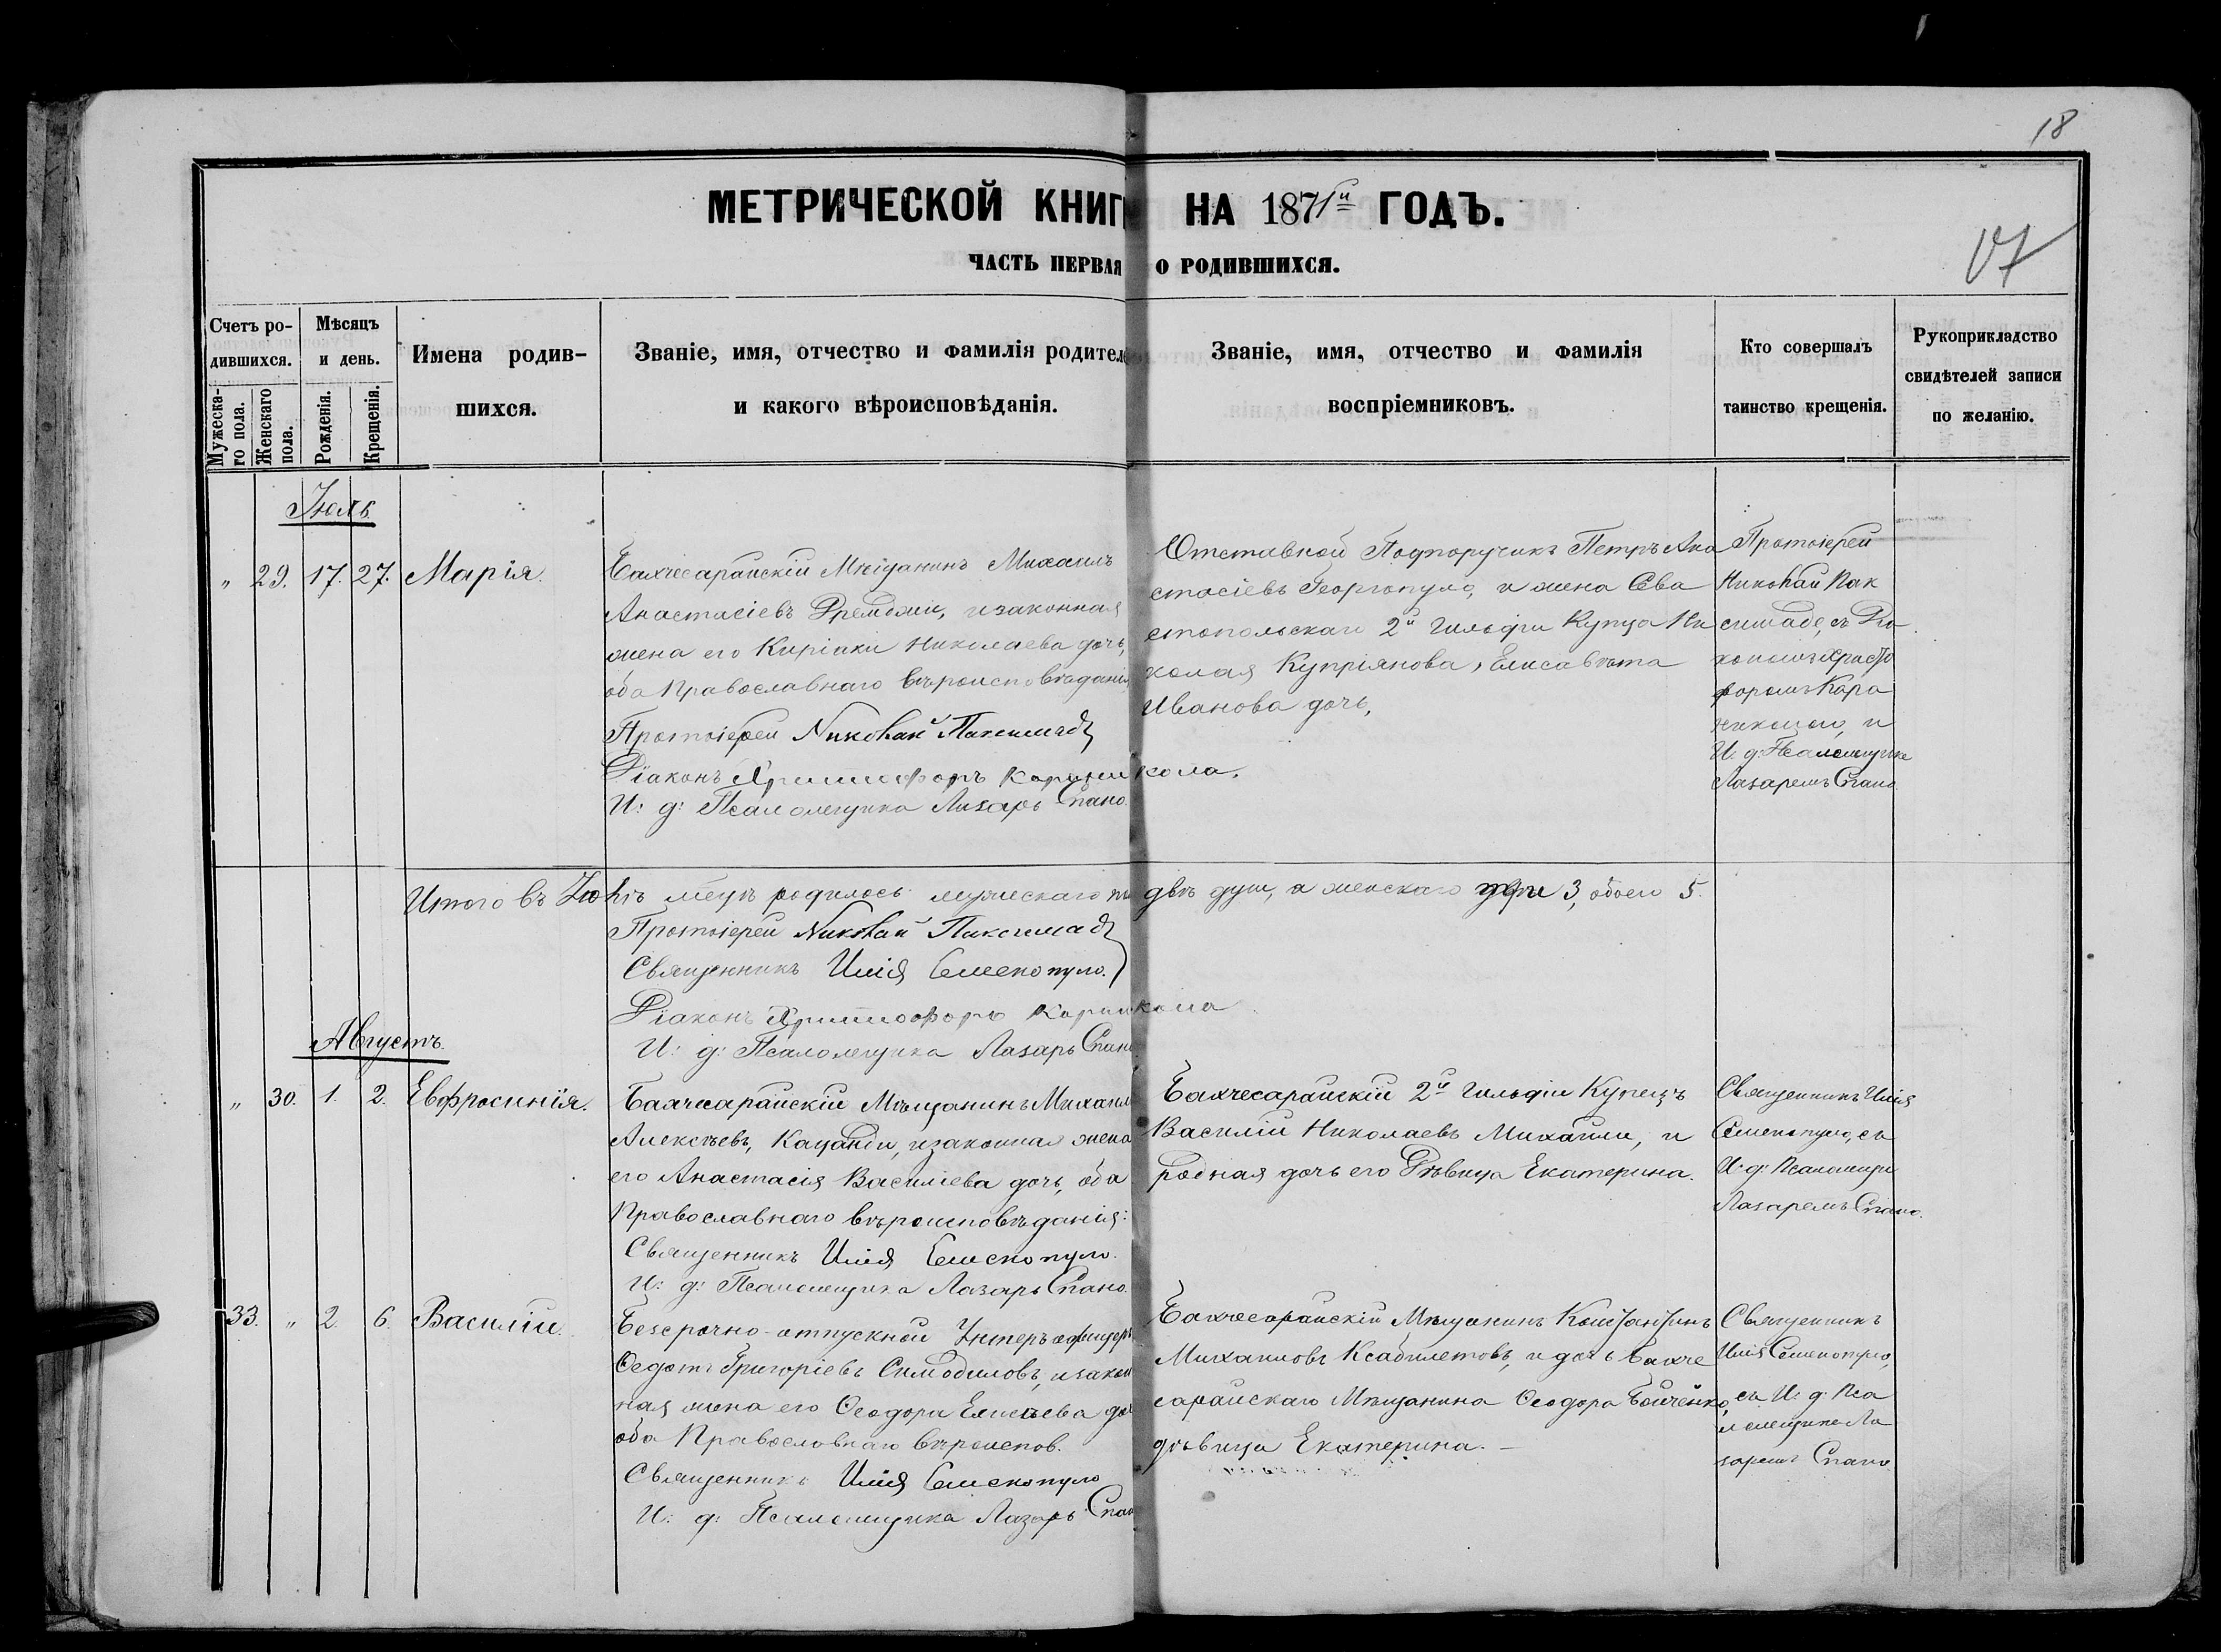 18
МЕТРИЧЕСКОЙ КНИГ НА 1871й ГОДЪ.
17
ЧАСТЬ ПЕРВАЯ О РОДИВШИХСЯ.
Счетъ ро-
дившихся.
Мужеска-
го пола.
Женскаго
пола.
Мѣсяцъ
и день.
Рожденія.
Крещенія.
Имена родив-
шихся.
Званіе, имя, отчество и фамилія родител
и какого вѣроисповѣданія.
Званіе, имя, отчество и фамилія
воспріемниковъ.
Кто совершалъ
таинство крещенія.
Рукоприкладство
свидѣтелей записи
по желанію.
Іюль
" 29. 17. 27. Марія.
Бахчесарайскій Мѣщанинъ Михаилъ
Анастасіевъ и законная
жена его Киріаки Николаева дочь,
оба Православнаго вѣроисповѣданія
Протоіерей Николай Паксимадъ
Діаконъ Христофоръ Караникола.
И: д: Псаломщика Лазарь Спано.
Отставной Подпоручикъ Петръ Ана
стасіевъ Георгопуло, и жена Сева
стопольскаго 2й Гильдіи Купца Ни
колая Купріянова, Елисавета
Иванова дочь,
Протоіерей
Николай Пак
симаде, съ Діа
кономъ Христо
форомъ Кара
николою, и
И. д: Псаломщика
Лазаремъ Спано
Итого въ Іюлѣ мцѣ родилось мужескаго по двѣ душ, а женскаго три 3, обоего 5.
Протоіерей Николай Паксимадъ
Священникъ Илія Семенопуло.
Діаконъ Христофоръ Караникола
И: д: Псаломщика Лазарь Спано
Августъ.
" 30. 1. 2. Евфросинія.
Бахчесарайскій Мѣщанинъ Михаил
Алексѣевъ, Кацанди, и законная жена
его Анастасія Василіева дочь, оба
Православнаго вѣроисповѣданія:
Священникъ Илія Семенопуло.
И: д: Псаломщика Лазарь Спано.
Бахчесарайскій 2й Гильдіи Купецъ
Василій Николаевъ Михайли, и
родная дочь его Дѣвица Екатерина.
Священникъ Илія
Семенопуло, съ
И: д: Псаломщи
Лазаремъ Спано.
33. " 2. 6. Василій.
Безсрочно-отпускной Унтеръ офицеръ
Ѳедотъ Григоріевъ и закон
ная жена его Ѳеодора Елисѣева до
оба Православнаго вѣроиспов.
Священникъ Илія Семенопуло
И: д: Псаломщика Лазарь Спан
Бахчесарайскій Мѣщанинъ Константинъ
Михаиловъ и дочь Бахче
сарайскаго Мѣщанина Ѳеодора Бойченко,
дѣвица Екатерина. —
Священникъ
Илія Семенопуло,
съ И: д: Пса
ломщика Ла
заремъ Спано